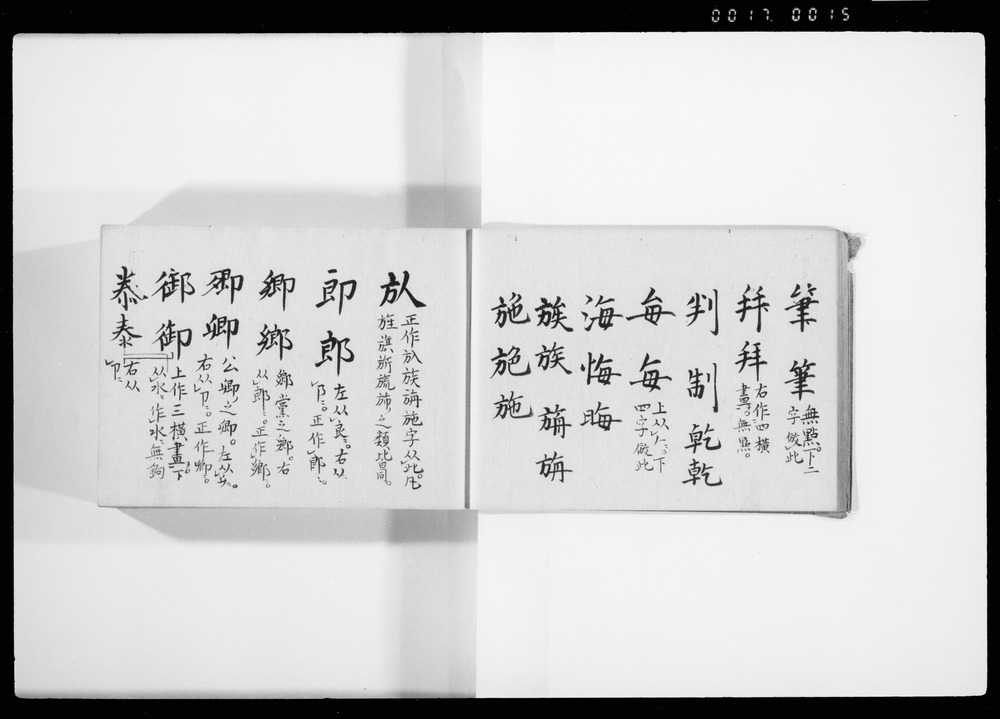 0017 0015
筆 筆 無點。下二
字倣此
拜 拜 右作四橫
畫。無點。
判 制 乾 乾
每 每 上从𠂉。下
四字倣此
海 悔 晦
族 族 旃 旃
施 施 施
㫃 正作㫃族旃施字从此。凡
旌旗旂旒旆之類皆同。
郎 郎 左从良。右从
卩。正作郎。
鄉 鄉 鄉黨之鄉。右
从郎。正作鄉。
卿 卿 公卿之卿。左从
右从卩。正作卿。
御 御 右从
卩
泰 泰 上作三橫畫下
从水作氺無鉤